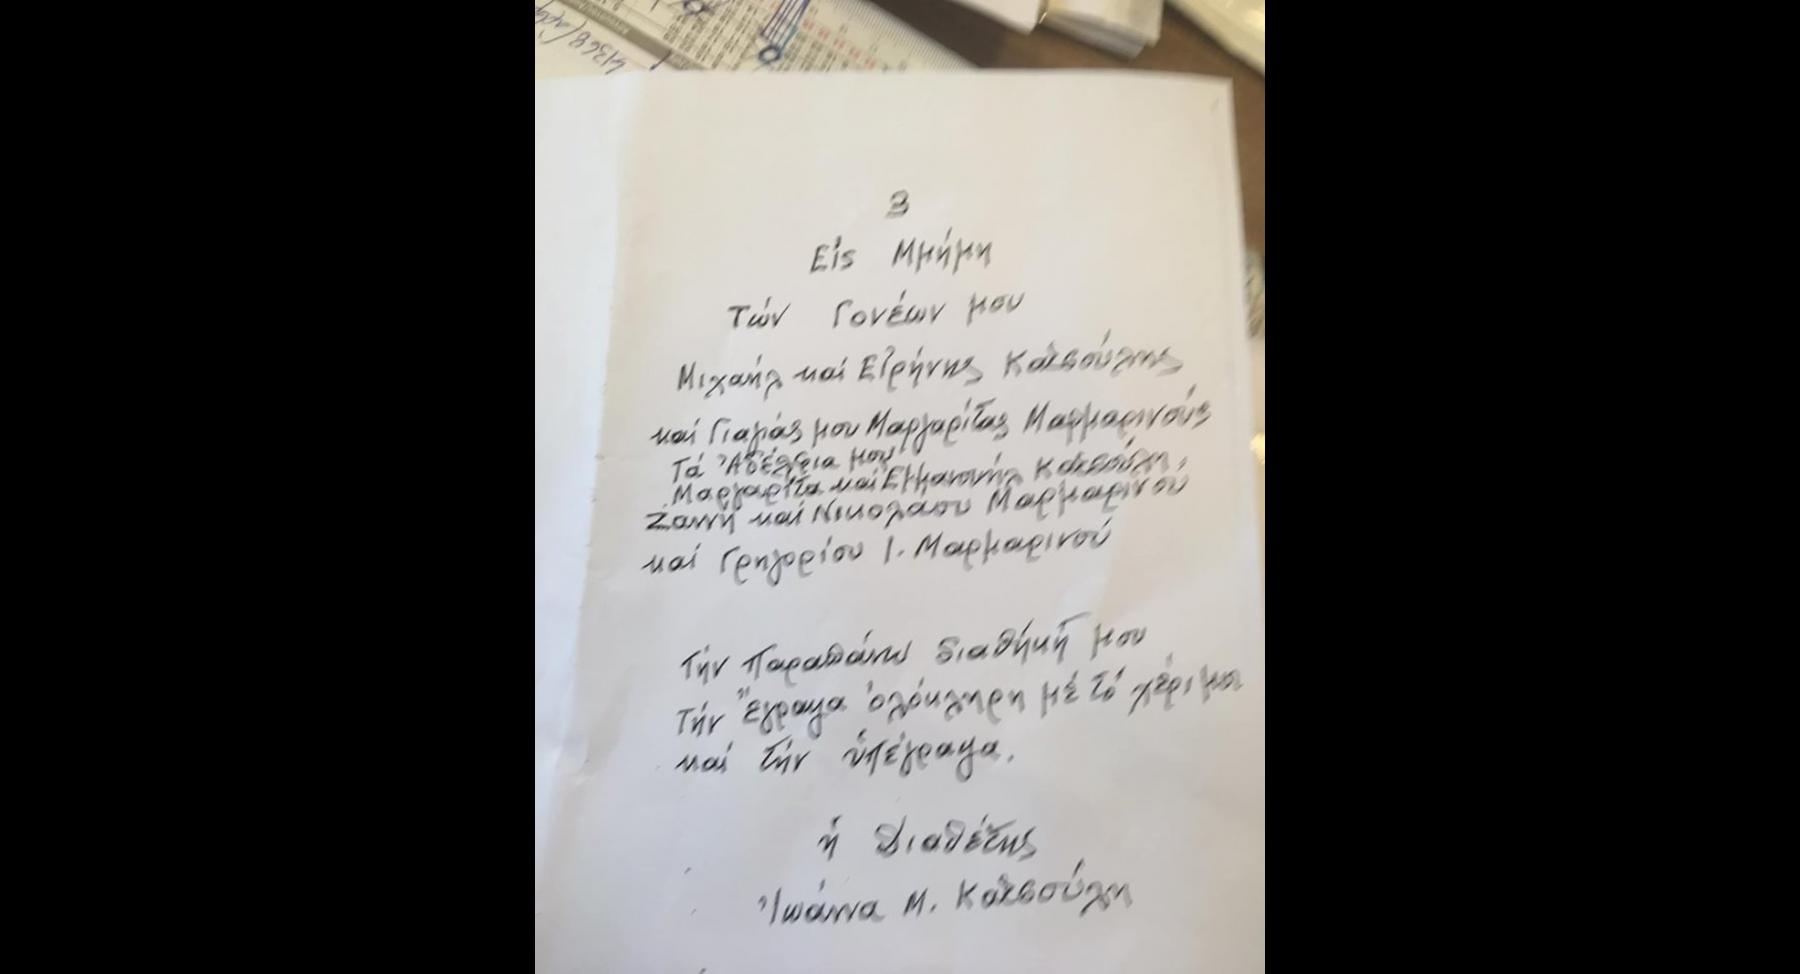 41368
3
Εἰς Μμήμη
Τών Γονέων μου
Μιχαήλ καί Εἰρήνης Κατσούλης
καί Γιαγιάς μου Μαργαρίτας Μαρμαρινούς
Τά Ἀδέλφια μου
Μαργαρίτα καί Εμμανουήλ Κατσούλη,
Ζαννή καί Νικολάου Μαρμαρινού
καί Γρηγορίου Ι. Μαρμαρινού
Τήν Παραπάνω διαθήκή μου
Τήν Ἔγραψα ὁλόκληρη μέ τό χέρι μου
καί τήν ὑπέγραψα.
ἡ Διαθέτης
Ἰωάννα Μ. Κατσούλη